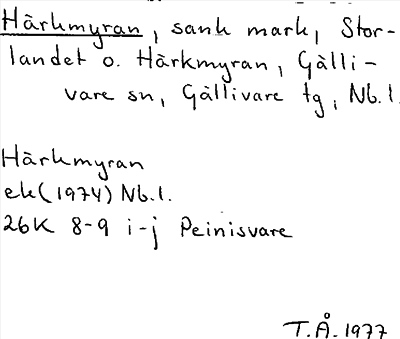 Härkmyran, sank mark, Stor-
landet o. Härkmyran, Gälli-
vare sn, Gällivare tg, Nb.l.
Härkmyran
ek(1974) Nb.l.
26K 8-9 i-j Peinisvare
T.Å. 1977